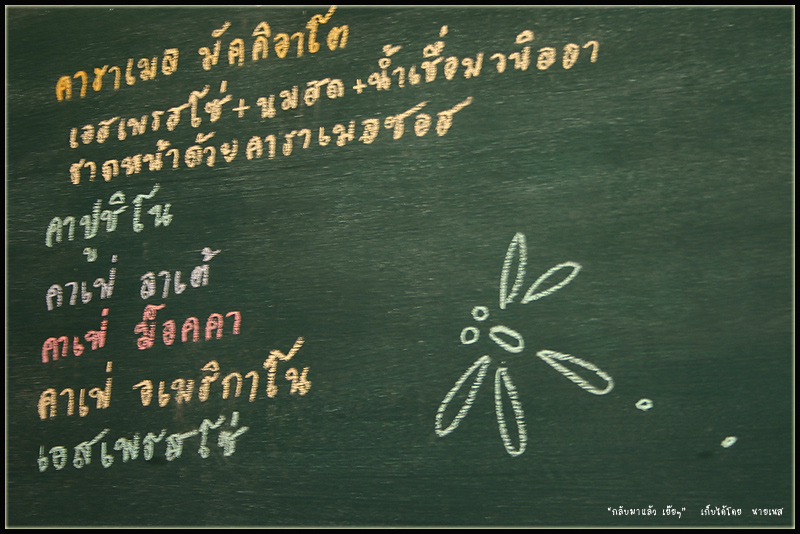 คาราเมล มัคคิอาโต
เอสเพรสโซ่+นมสด+น้ำเชื่อมวนิลา
ราดหน้าด้วยคาราเมลซอส
คาปูชิโน
คาเฟ่ ลาเต้
คาเฟ่ ม็อคคา
คาเฟ่ อเมริกาโน
เอสเพรสโซ่
"กลับมาแล้ว เย้ๆ" เก็บได้โดย นายเนส